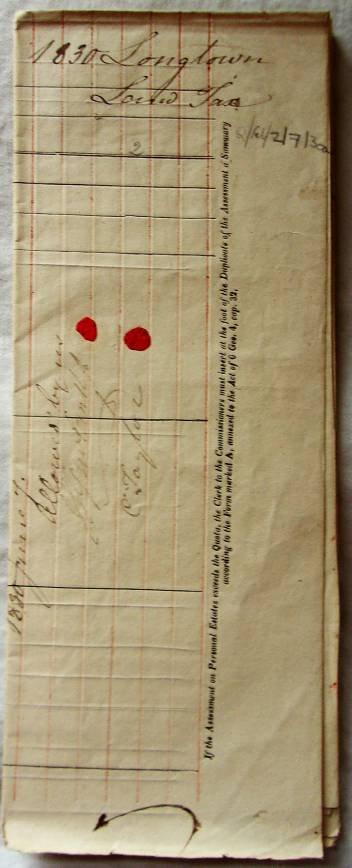 1830 Longtown
Land Tax
2
If the Assessment on Personal Estates exceeds the Quota, the Clerk to the Commissioners must insert at the foot of the Duplicate of the Assessment a Summary
according to the Form marked A, annexed to the Act of 6 Geo. 4, cap. 32.
1830 June 7.
Allowed by us
C Taylor